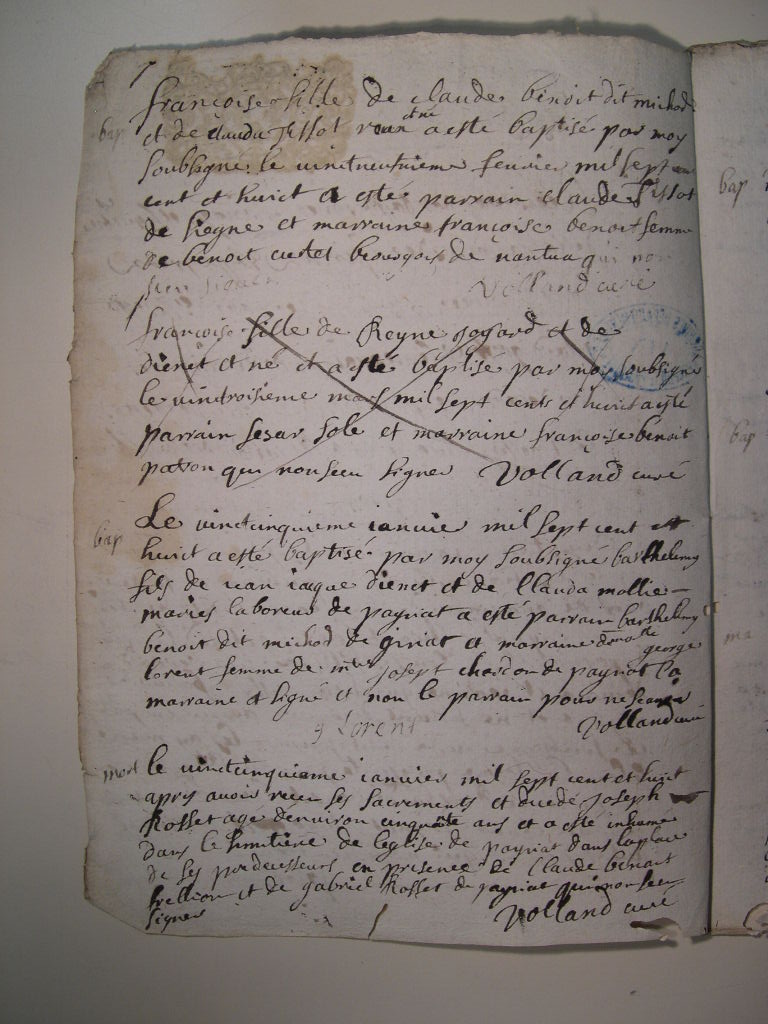 françoise fille de claude benoit dit michod
bap
et de clauda Tissot a esté baptisé par moy
soubsigné le vintneufvieme fevrier mil sept
cent et huict a esté parrain claude Tissot
de et marraine françoise benoit femme
de benoit bourgois de nantua qui non
sceu signer Volland curé
françoise fille de Reyne Jogard et de
dienet et né et a esté baptisé par moy soubsigné
le vintroisieme mars mil sept cents et huict a esté
parrain sesar sole et marraine françoise benoit
patron qui non sceu signer Volland curé
bap
Le vintcinquieme ianvier mil sept cent et
huict a esté baptisé par moy soubsigné barthelemy
fils de iean iaque dienet et de Clauda mollie
maries laboreur de payriat a esté parrain barthelemy
benoit dit michod de giriat et marraine
george
lorent femme de joseph chardon de payriat la
marraine a signé et non le parrain pour ne scavoir
g Lorent Volland curé
mort
le vintcinquieme ianvier mil sept cent et huict
apres avoir receu ses sacrements et Joseph
Rosset agé denviron cinquante ans et a esté inhumé
dans le simitiere de leglise de payriat dans la place
de ses predecesseurs en presence de Claude benoit
et de gabriel Rosset de payriat qui non sceu
signer Volland curé
bap
bap